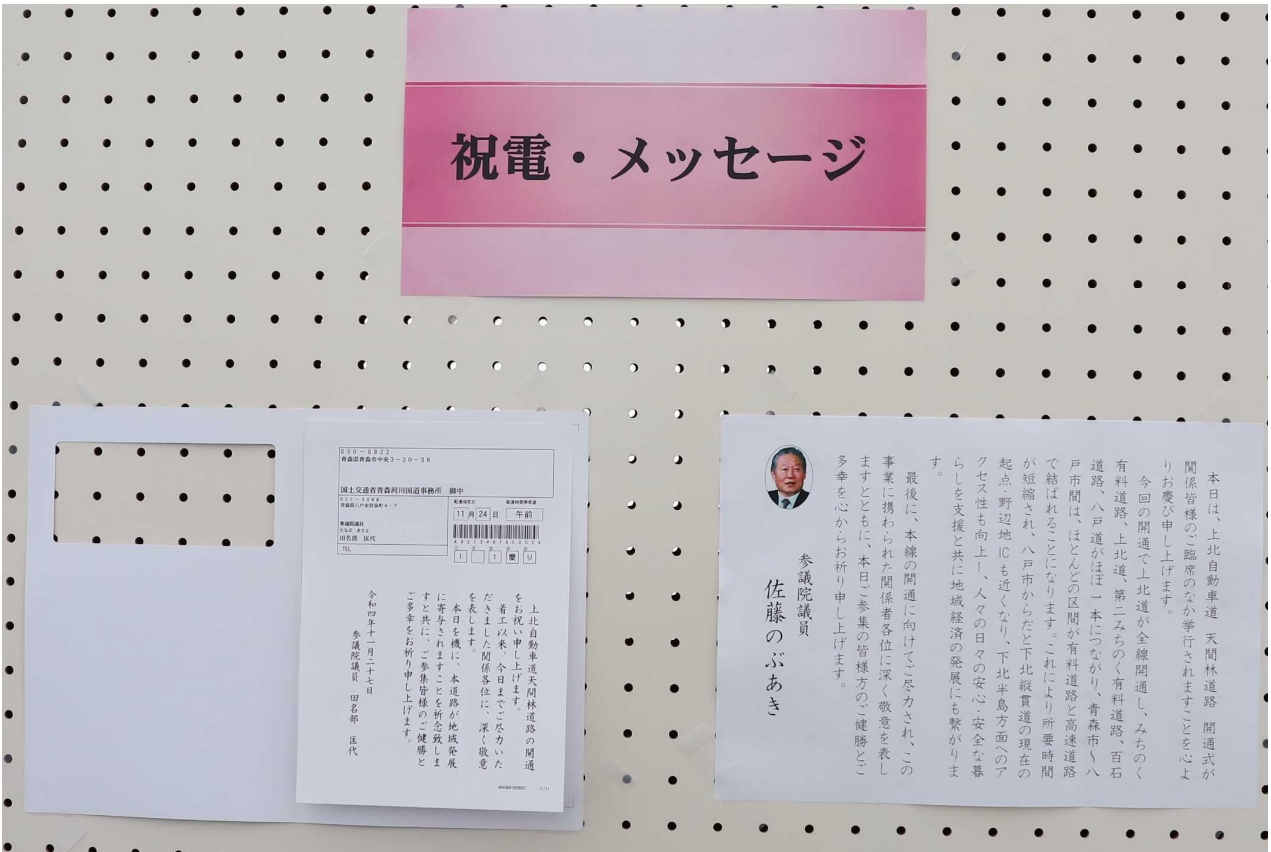 祝電・メッセージ
030-0822
青森県青森市中央3-20-38
国土交通省青森河川国道事務所 御中
参議院議員
たなぶ まさよ
田名部 匡代
TEL
配達指定日
11月24日
午前
慶
り
上北自動車道天間林道路の開通
をお祝い申し上げます。
着工以来、今日までご尽力いた
だきました関係各位に、深く敬意
を表します。
本日を機に、本道路が地域発展
に寄与されますことを祈念致しま
すと共に、ご参集皆様のご健勝と
ご多幸をお祈り申し上げます。
令和四年十一月二十七日
参議院議員 田名部 匡代
本日は、上北自動車道 天間林道路 開通式が
関係皆様のご臨席のなか挙行されますことを心よ
りお慶び申し上げます。
今回の開通で上北道が全線開通し、みちのく
有料道路、上北道、第二みちのく有料道路、百石
道路、八戸道がほぼ一本につながり、青森市〜八
戸市間は、ほとんどの区間が有料道路と高速道路
で結ばれることになります。これにより所要時間
が短縮され、八戸市からだと下北縦貫道の現在の
起点・野辺地ICも近くなり、下北半島方面へのア
クセス性も向上し、人々の日々の安心・安全な暮
らしを支援と共に地域経済の発展にも繋がりま
す。
最後に、本線の開通に向けてご尽力され、この
事業に携わられた関係者各位に深く敬意を表し
ますとともに、本日ご参集の皆様方のご健勝とご
多幸を心からお祈り申し上げます。
参議院議員
佐藤のぶあき